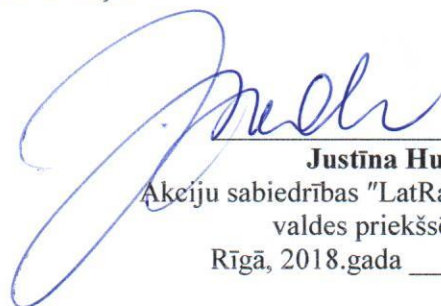 Justīna Hu
Akciju sabiedrības "LatRa
valdes priekšsē
Rīgā, 2018.gada ___